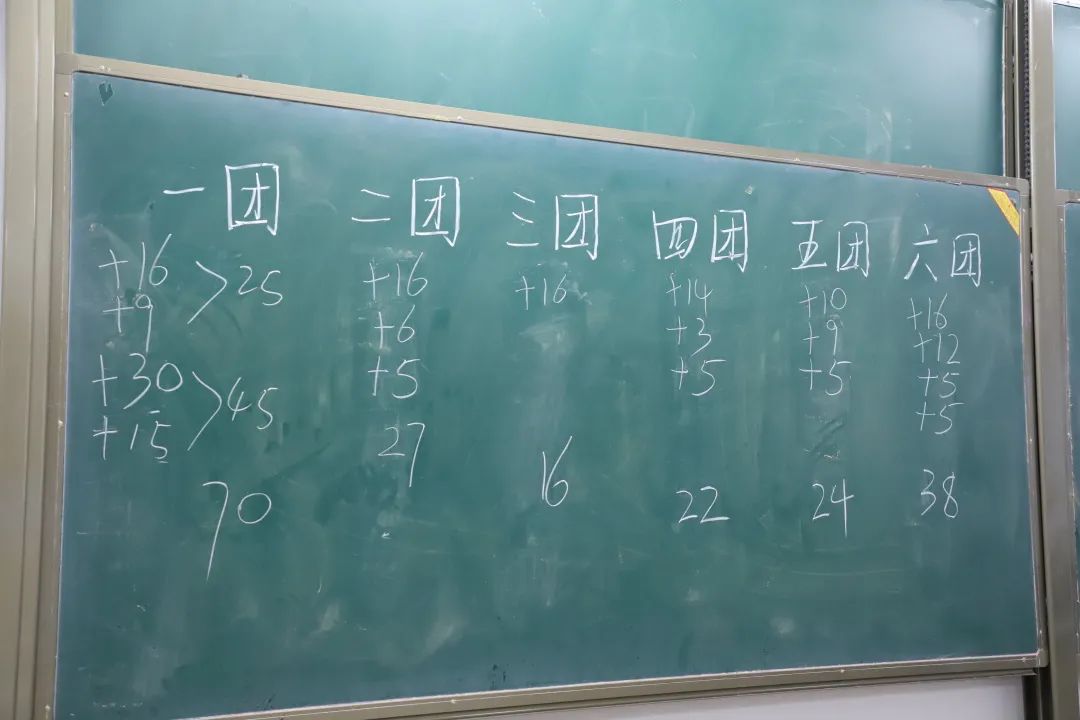 一团 二团 三团 四团 五团 六团
+16 +16 +16 +14 +10 +16
+9 >25 +6 +3 +9 +12
+30 +5 +5 +5 +5
+15 >45 +5
70 27 16 22 24 38